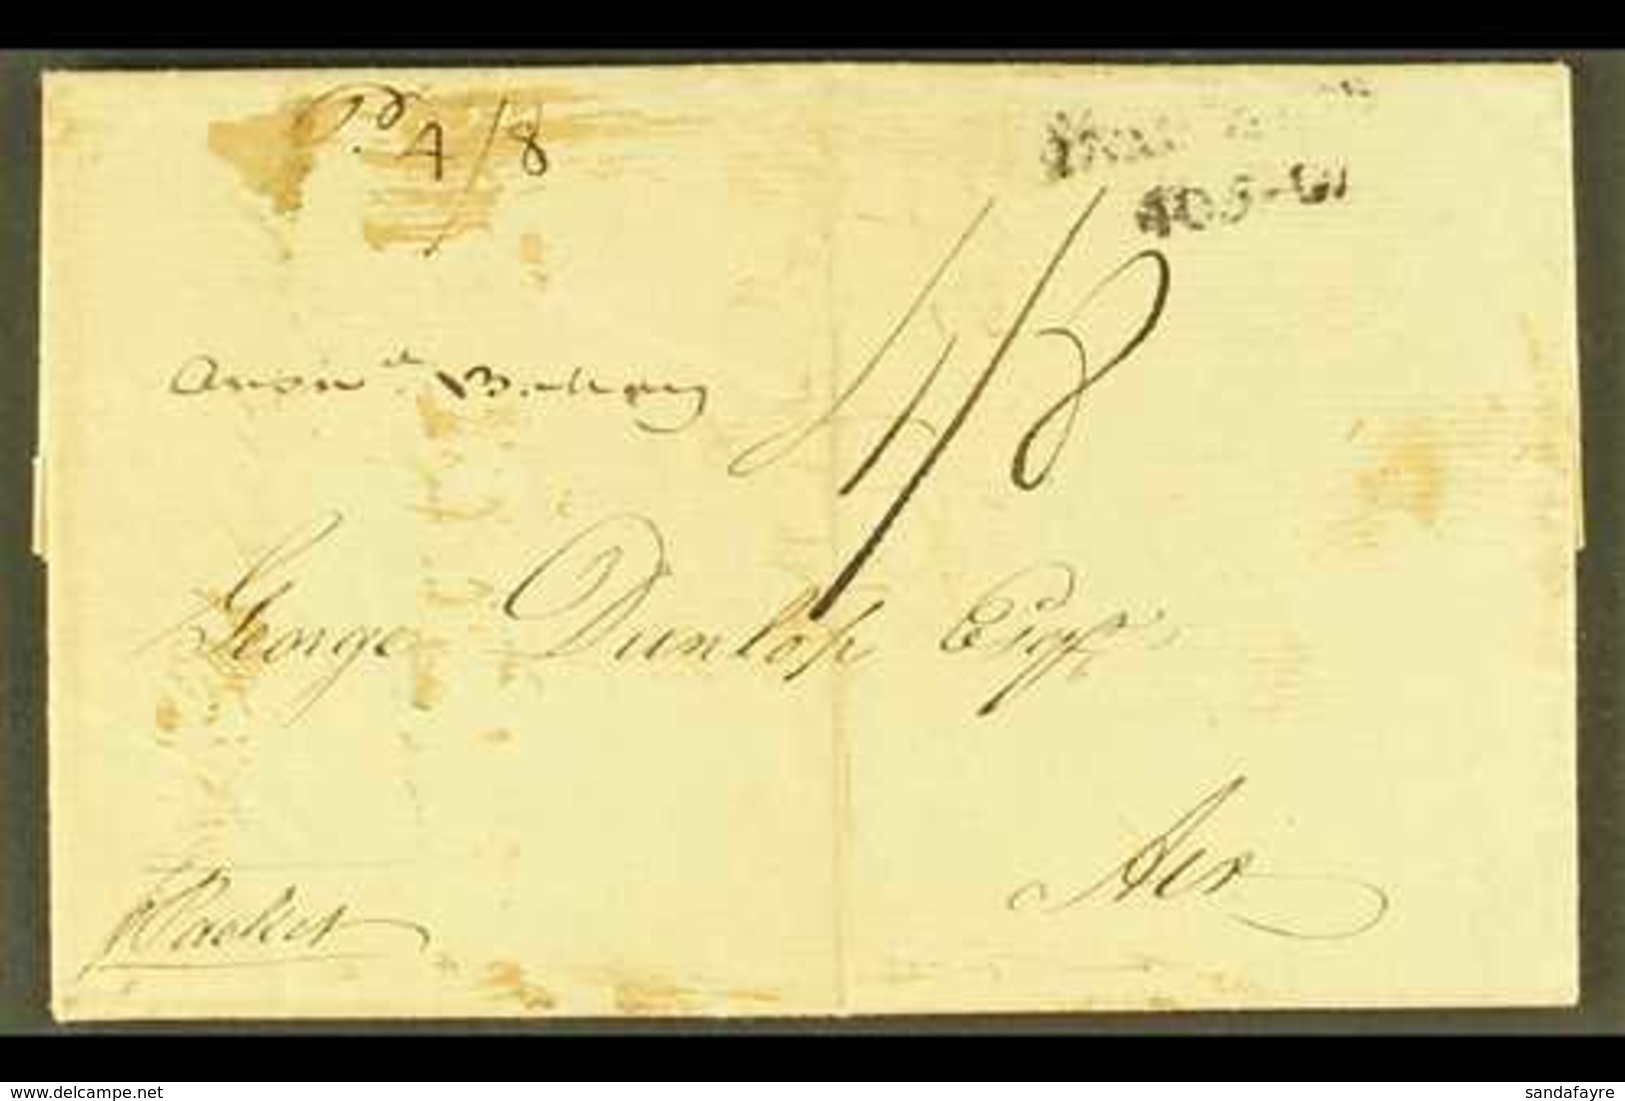 Pd 4/8
405-W
4/8
George Dunlop Esqr
Air
Packet
www.delcampe.net
sandafayre